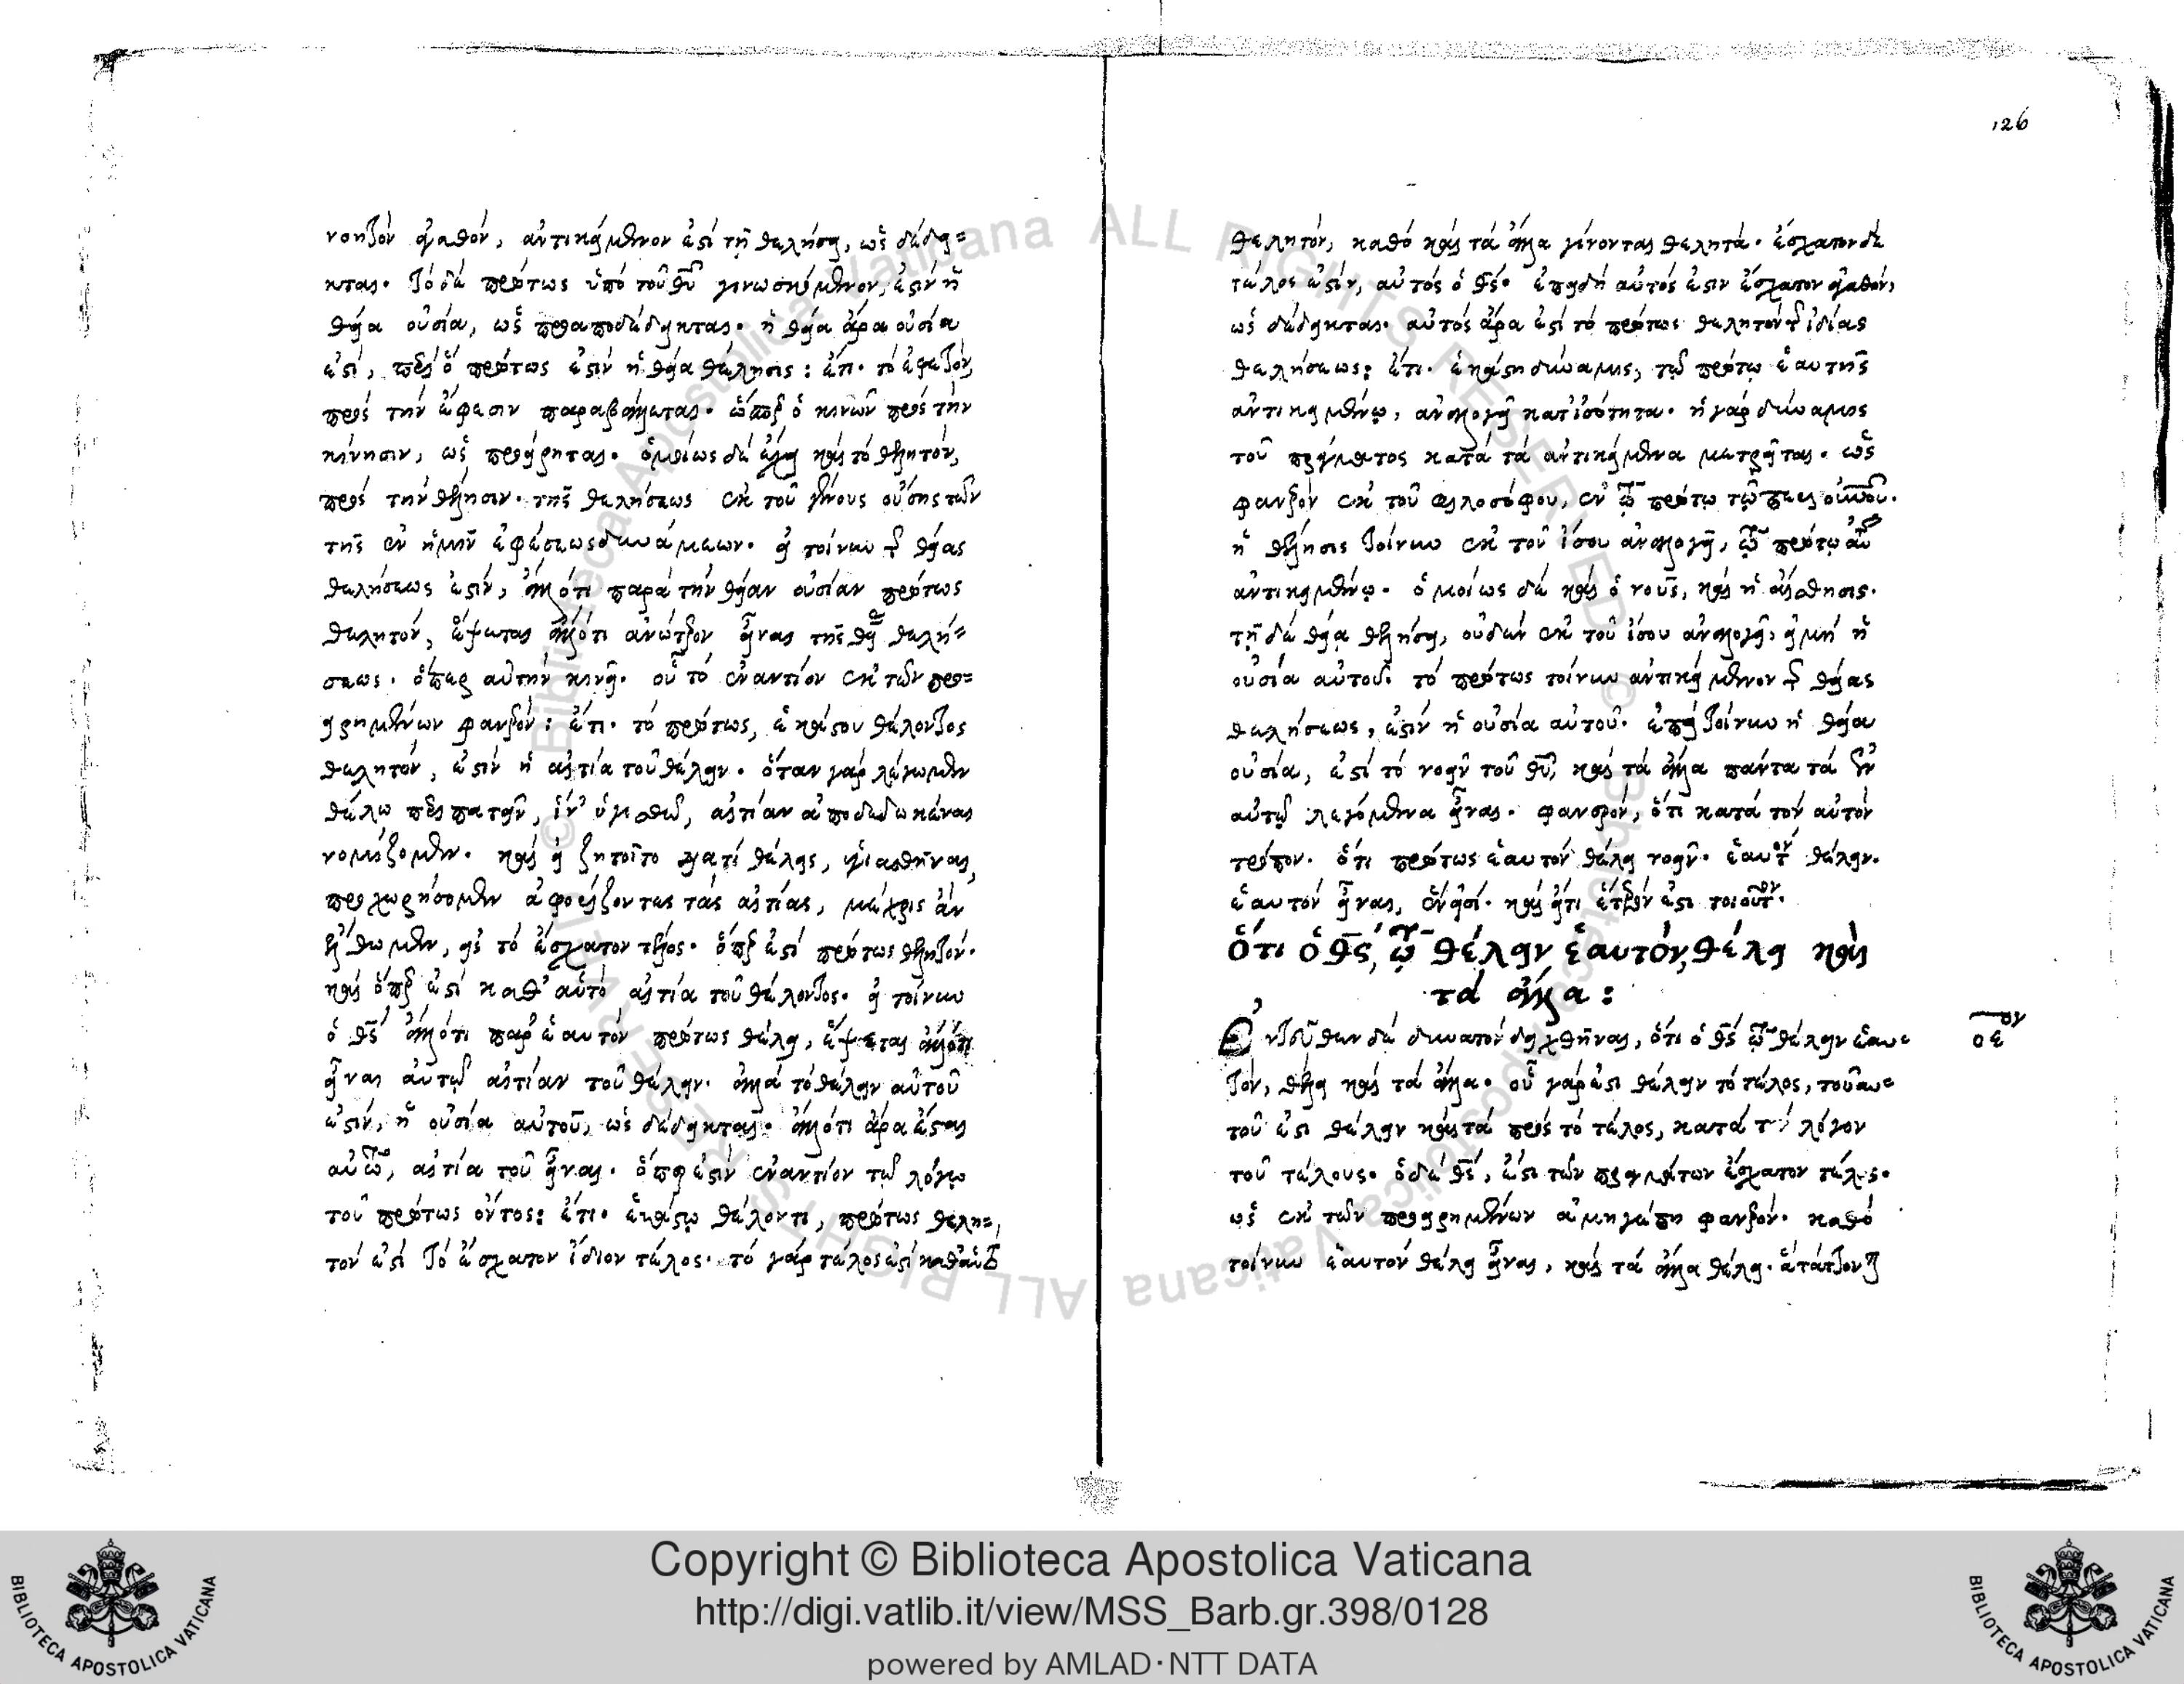 νοητὸν ἀγαθὸν, ἀντικείμενον ἐστὶ τῇ θελήσει, ὡς δέδει=
κται. τὸ δὲ πρώτως ὑπὸ τοῦ θυ γινωσκόμενον, ἐστὶν ἡ
θεία οὐσία, ὡς προαποδέδεικται. ἡ θεία ἄρα οὐσία
ἐστὶ, περὶ ὃ πρώτως ἐστὶν ἡ θεία θέλησις: ἔτι. τὸ ἐφετὸν,
πρὸς τὴν ἔφεσιν παραβάλλεται. ὥσπερ ὁ κινῶν πρὸς τὴν
κίνησιν, ὡς προείρηται. ὁμοίως δὲ ἔχει καὶ τὸ θελητὸν,
πρὸς τὴν θέλησιν. τῆς θελήσεως ἐκ τοῦ γένους οὔσης τῶν
τῆς ἐν ἡμῖν ἐφέσεως δυνάμεων. εἰ τοίνυν τῆς θείας
θελήσεως ἐστὶν, ἄλλό τι παρὰ τὴν θείαν οὐσίαν πρώτως
θελητὸν, ἕψεται ἄλλό τι ἀνώτερον εἶναι τῆς θείας θελή=
σεως. ὅπερ αὐτὴν κινεῖ. οὗ τὸ ἐναντίον ἐκ τῶν προ=
ειρημένων φανερόν: ἔτι. τὸ πρώτως, ἑκάστου θέλοντος
θελητὸν, ἐστὶν ἡ αἰτία τοῦ θέλειν. ὅταν γὰρ λέγωμεν
θέλω περιπατεῖν, ἵν' ὑγιαθῶ, αἰτίαν ἀποδεδωκέναι
νομίζομεν. καὶ εἰ ζητοῖτο διατί θέλεις, ὑγιασθῆναι,
προχωρήσομεν ἀφορίζοντες τὰς αἰτίας, μέχρις ἂν
ἔλθωμεν, εἰς τὸ ἔσχατον τέλος. ὅπερ ἐστὶ πρώτως θελητόν.
καὶ ὅπερ ἐστὶ καθ' αὑτὸ αἰτία τοῦ θέλοντος. εἰ τοίνυν
ὁ θς ἄλλό τι παρ' ἑαυτὸν πρώτως θέλει, ἕψεται ἄλλό τι
εἶναι αὐτῷ αἰτίαν τοῦ θέλειν. ἀλλὰ τὸ θέλειν αὐτοῦ
ἐστὶν, ἡ οὐσία αὐτοῦ, ὡς δέδεικται. ἄλλό τι ἄρα ἔσται
αὐτῷ, αἰτία τοῦ εἶναι. ὅπερ ἐστὶν ἐναντίον τῷ λόγῳ
τοῦ πρώτως ὄντος: ἔτι. ἑκάστῳ θέλοντι, πρώτως θελη=
τόν ἐστι τὸ ἔσχατον ἴδιον τέλος. τὸ γὰρ τέλος ἐστὶ καθ' αὑτὸ
126
θελητὸν, καθὸ καὶ τὰ ἄλλα γίνονται θελητά. ἔσχατον δὲ
τέλος ἐστὶν, αὐτὸς ὁ θς. ἐπειδὴ αὐτός ἐστιν ἔσχατον ἀγαθὸν,
ὡς δέδεικται. αὐτὸς ἄρα ἐστὶ τὸ πρώτως θελητὸν τῆς ἰδίας
θελήσεως: ἔτι. ἑκάστη δύναμις, τῷ πρώτῳ ἑαυτῆς
ἀντικειμένῳ, ἀναλογεῖ κατ' ἰσότητα. ἡ γὰρ δύναμις
τοῦ πράγματος κατὰ τὰ ἀντικείμενα μετρεῖται. ὡς
φανερὸν ἐκ τοῦ φιλοσόφου, ἐν τῷ πρώτῳ τῷ περὶ οὐνοῦ.
ἡ θέλησις τοίνυν ἐκ τοῦ ἴσου ἀναλογεῖ, τῷ πρώτῳ αὐτῆς
ἀντικειμένῳ. ὁμοίως δὲ καὶ ὁ νοῦς, καὶ ἡ αἴσθησις.
τῇ δὲ θεία θελήσει, οὐδὲν ἐκ τοῦ ἴσου ἀναλογεῖ, εἰ μὴ ἡ
οὐσία αὐτοῦ. τὸ πρώτως τοίνυν ἀντικείμενον τῆς θείας
θελήσεως, ἐστὶν ἡ οὐσία αὐτοῦ. ἐπεὶ τοίνυν ἡ θεία
οὐσία, ἐστὶ τὸ νοεῖν τοῦ θυ, καὶ τὰ ἄλλα πάντα τὰ ἐν
αὐτῷ λεγόμενα εἶναι. φανερὸν, ὅτι κατὰ τὸν αὐτὸν
τρόπον. ὅτι πρώτως ἑαυτὸν θέλει νοεῖν. ἑαυτὸν θέλειν.
ἑαυτὸν εἶναι, ἕνα. καὶ εἴ τι ἕτερόν ἐστι τοιοῦτον.
ὅτι ὁ θς, τῷ θέλειν ἑαυτὸν, θέλει καὶ
τὰ ἄλλα:
Ἐντεῦθεν δὲ δυνατὸν δειχθῆναι, ὅτι ὁ θς τῷ θέλειν ἑαυ=
τὸν, θέλει καὶ τὰ ἄλλα. οὗ γάρ ἐστι θέλειν τὸ τέλος, τούτου=
τοῦ ἐστὶ θέλειν καὶ τὰ πρὸς τὸ τέλος, κατὰ τὸν λόγον
τοῦ τέλους. ὁ δὲ θς, ἐστὶ τῶν πραγμάτων ἔσχατον τέλος.
ὡς ἐκ τῶν προειρημένων ἀμηγέπη φανερόν. καθὸ
τοίνυν ἑαυτὸν θέλει εἶναι, καὶ τὰ ἄλλα θέλει.
οε
Copyright © Biblioteca Apostolica Vaticana
http://digi.vatlib.it/view/MSS_Barb.gr.398/0128
powered by AMLAD·NTT DATA
BIBLIOTECA APOSTOLICA VATICANA
BIBLIOTECA APOSTOLICA VATICANA